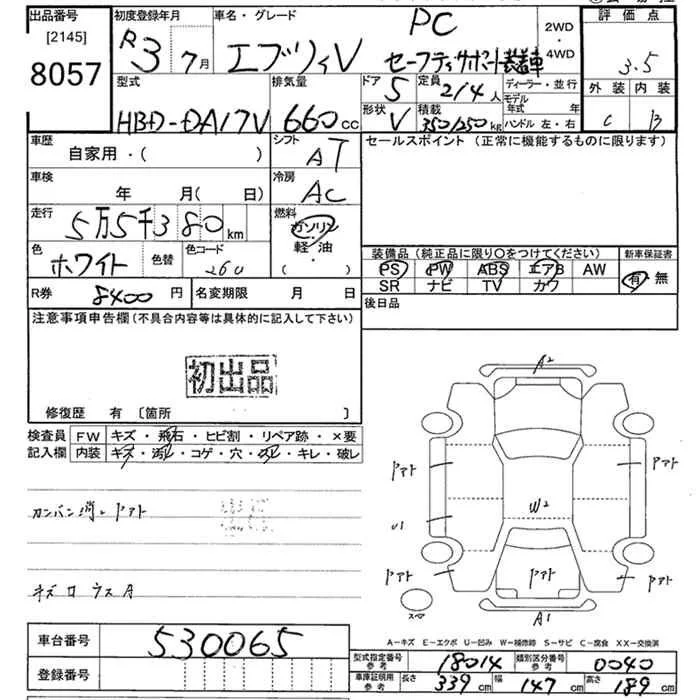 出品番号
[2145]
8057
初度登録年月
R3 7月
車名・グレード
エブリィV
PC
セーフティサポート装着車
2WD
・
4WD
評価点
3.5
外装 内装
C B
型式
HBD-DA17V
排気量
660cc
ドア
5
定員
2/4人
ディーラー・並行
形状
V
積載
350/250kg
モデル年式 年
ハンドル 左・右
車歴
自家用・( )
シフト
AT
セールスポイント (正常に機能するものに限ります)
車検
年 月(日)
冷房
AC
走行
5万5千380km
燃料
ガソリン
軽・油
( )
色
ホワイト
色替
色コード
26U
装備品 (純正品に限り○をつけてください)
新車保証書
PS PW ABS エアB AW
有 無
SR ナビ TV カワ
R券
8400円
名変期限 月 日
後日品
注意事項申告欄 (不具合内容等は具体的に記入して下さい)
初出品
修復歴 有 〔箇所 〕
検査員
記入欄
FW キズ・飛石・ヒビ割・リペア跡・×要
内装 キズ・汚レ・コゲ・穴・スレ・キレ・破レ
カンバン消し Pアト
キズロウスA
A2
Pアト
Pアト
U1
W2
Pアト
Pアト
Pアト
スペア
A1
A-キズ E-エクボ U-凹み W-補修跡 S-サビ C-腐食 XX-交換済
車台番号
530065
登録番号
型式指定番号
参考
18014
類別区分番号
参考
0040
車庫証明用
参考
長さ 339cm 幅 147cm 高さ 189cm